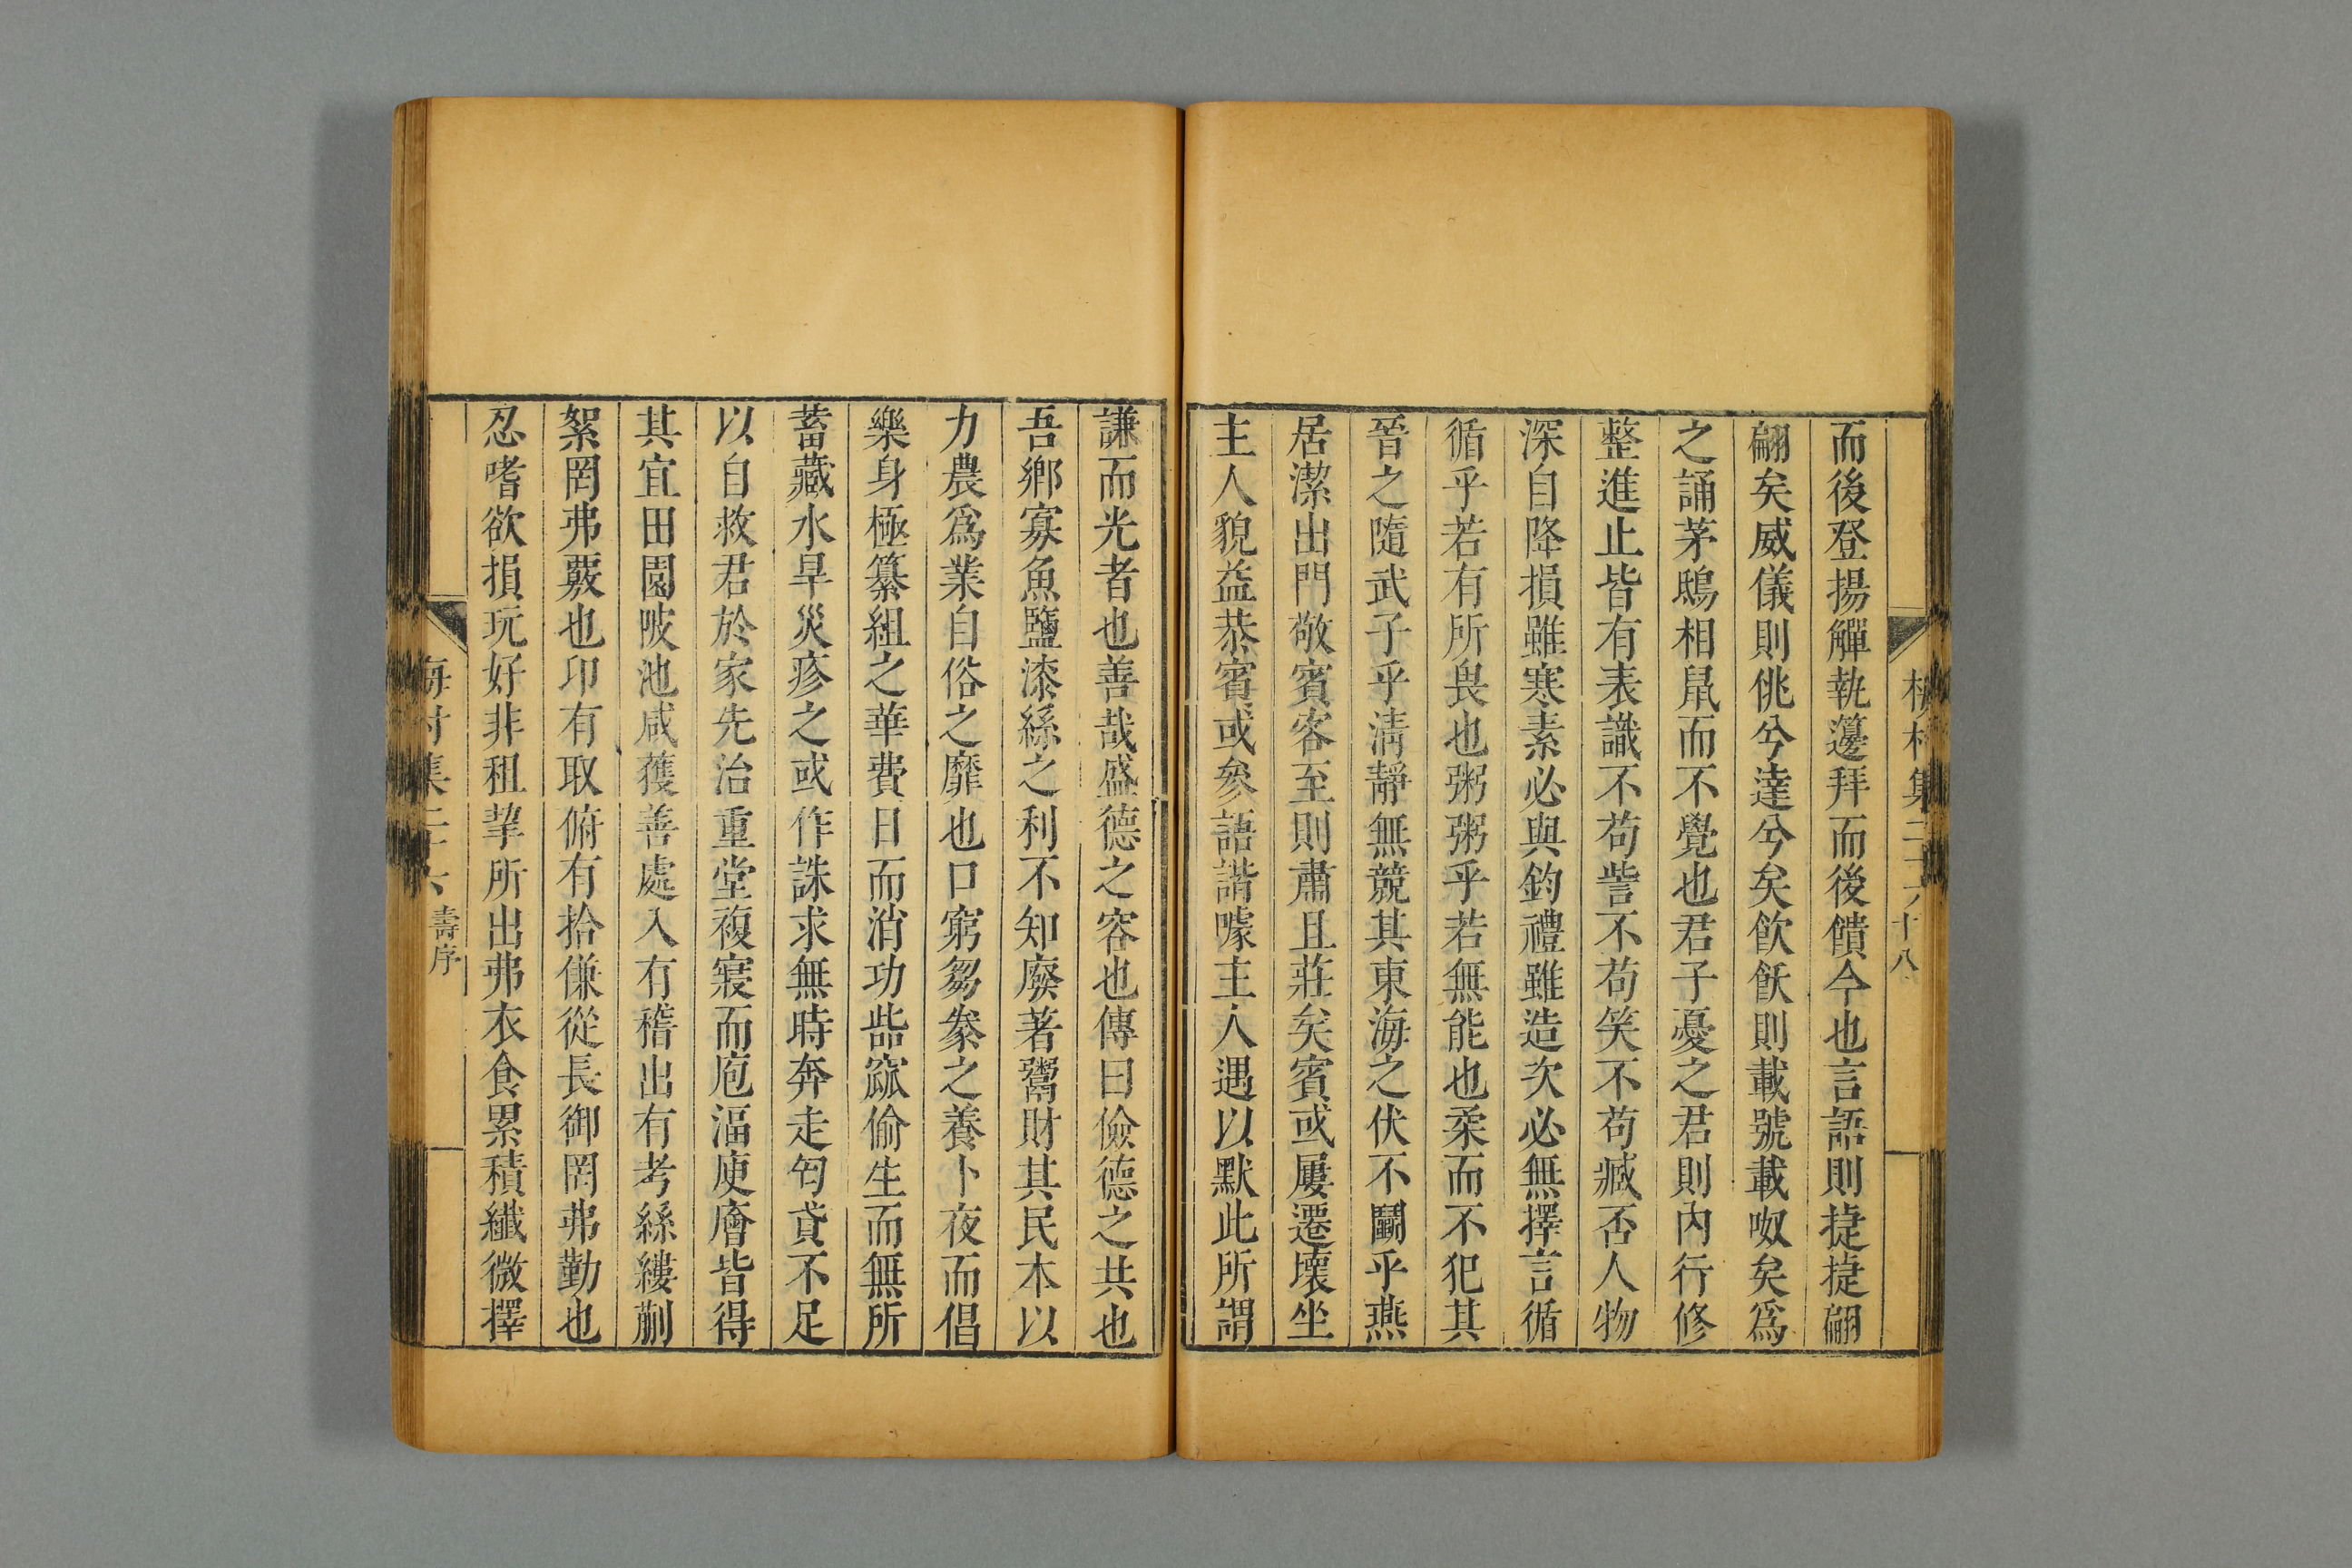 而後登揚觶執籩拜而後饋今也言語則捷捷翩
翩矣威儀則佻兮達兮矣飮飫則載號載呶矣爲
之誦茅鴟相鼠而不覺也君子憂之君則內行修
整進止皆有表識不苟訾不苟笑不苟臧否人物
深自降損雖寒素必與鈞禮雖造次必無擇言循
循乎若有所畏也粥粥乎若無能也柔而不犯其
晉之隨武子乎淸靜無競其東海之伏不鬭乎燕
居潔出門敬賓客至則肅且莊矣賓或屢遷壞坐
主人貌益恭賓或參語諧噱主人遇以默此所謂
謙而光者也善哉盛德之容也傳曰儉德之共也
吾鄉寡魚鹽漆絲之利不知廢著鬻財其民本以
力農爲業自俗之靡也口窮芻豢之養卜夜而倡
樂身極纂組之華費日而消功呰窳偷生而無所
蓄藏水旱災疹之或作誅求無時奔走匄貣不足
以自救君於家先治重堂複寢而庖湢庾廥皆得
其宜田園陂池咸獲善處入有稽出有考絲縷蒯
絮罔弗覈也卬有取俯有拾傔從長御罔弗勤也
忍嗜欲損玩好非租挈所出弗衣食累積纖微擇
梅村集二十六 壽序
梅村集二十六 十八